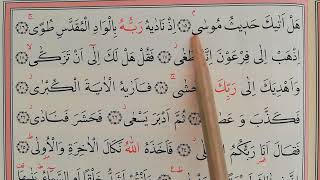 هَلْ اَتٰيكَ حَدٖيثُ مُوسٰى اِذْ نَادٰيهُ رَبُّهُ بِالْوَادِ الْمُقَدَّسِ طُوًى
اِذْهَبْ اِلٰى فِرْعَوْنَ اِنَّهُ طَغٰى فَقُلْ هَلْ لَكَ اِلٰٓى اَنْ تَزَكّٰى
وَاَهْدِيَكَ اِلٰى رَبِّكَ فَاَرٰيهُ الْاٰيَةَ الْكُبْرٰى
فَكَذَّبَ وَعَصٰى ثُمَّ اَدْبَرَ يَسْعٰى فَحَشَرَ فَنَادٰى
فَقَالَ اَنَا رَبُّكُمُ فَاَخَذَهُ اللّٰهُ نَكَالَ الْاٰخِرَةِ وَالْاُو۫لٰى